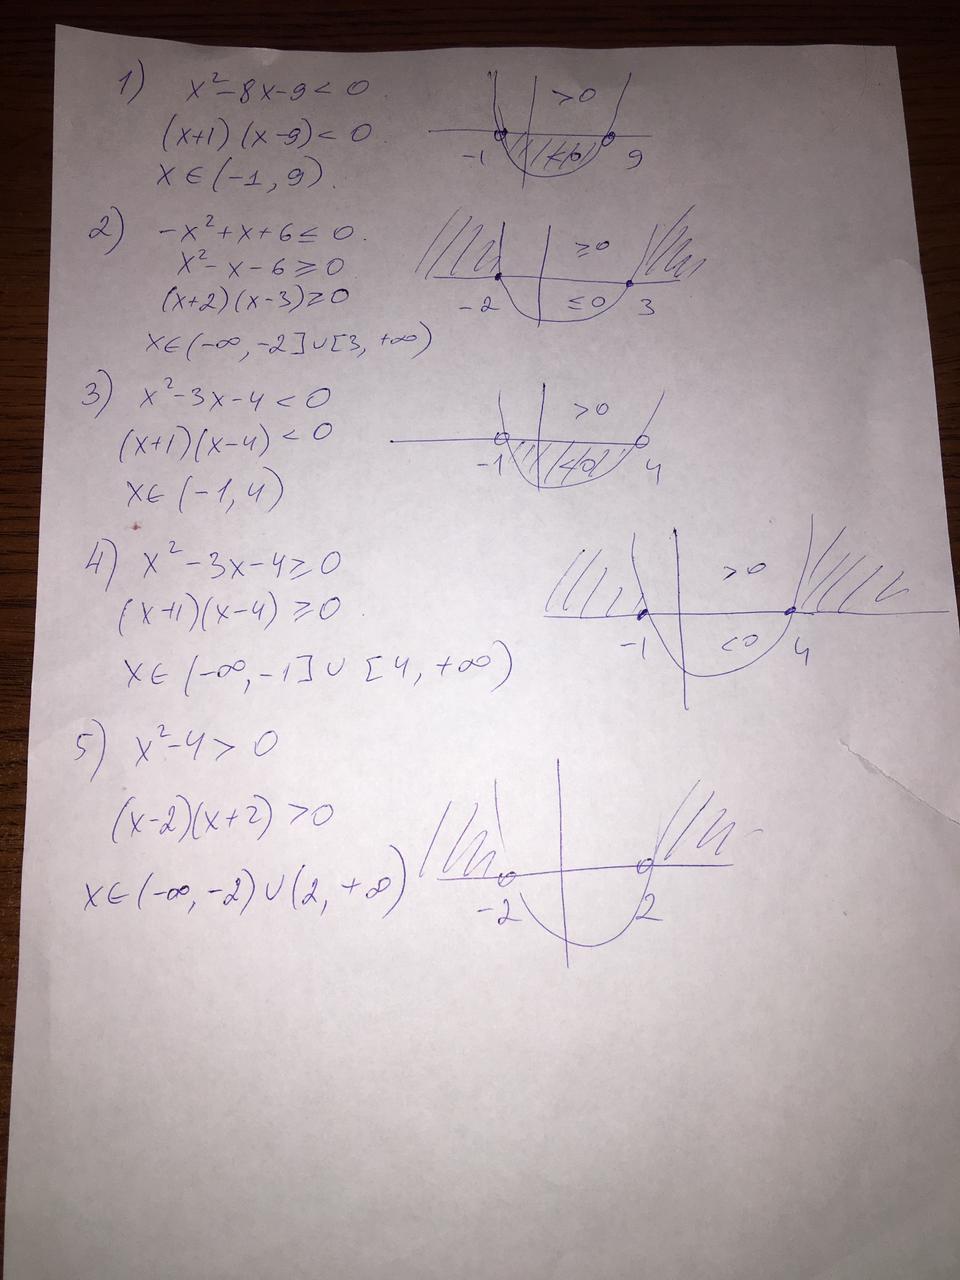 1) x²-8x-9<0
(x+1)(x-9)<0
x∈(-1,9).
>0
<0
-1
9
2) -x²+x+6≤0.
x²-x-6≥0
(x+2)(x-3)≥0
x∈(-∞,-2]∪[3,+∞)
≥0
≤0
-2
3
3) x²-3x-4<0
(x+1)(x-4)<0
x∈(-1,4)
>0
<0
-1
4
4) x²-3x-4≥0
(x+1)(x-4)≥0
x∈(-∞,-1]∪[4,+∞)
>0
<0
-1
4
5) x²-4>0
(x-2)(x+2)>0
x∈(-∞,-2)∪(2,+∞)
-2
2